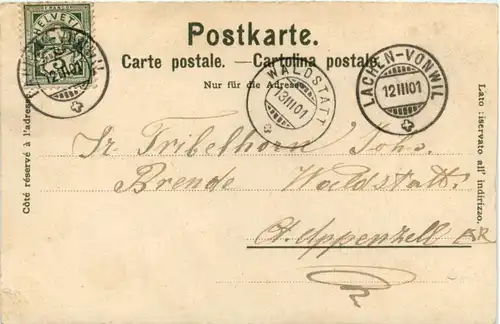 HELVETIA
Postkarte.
Carte postale. — Cartolina postale.
Nur für die Adresse
WALDSTATT
13 III 01
LACHEN-VONWIL
12 III 01
LACHEN-VONWIL
12 III 01
Côté réservé à l'adresse
Lato riservato all' indirizzo.
Tr. Tribelhorn Johs.
Brende Waldstatt.
Ct. Appenzell AR